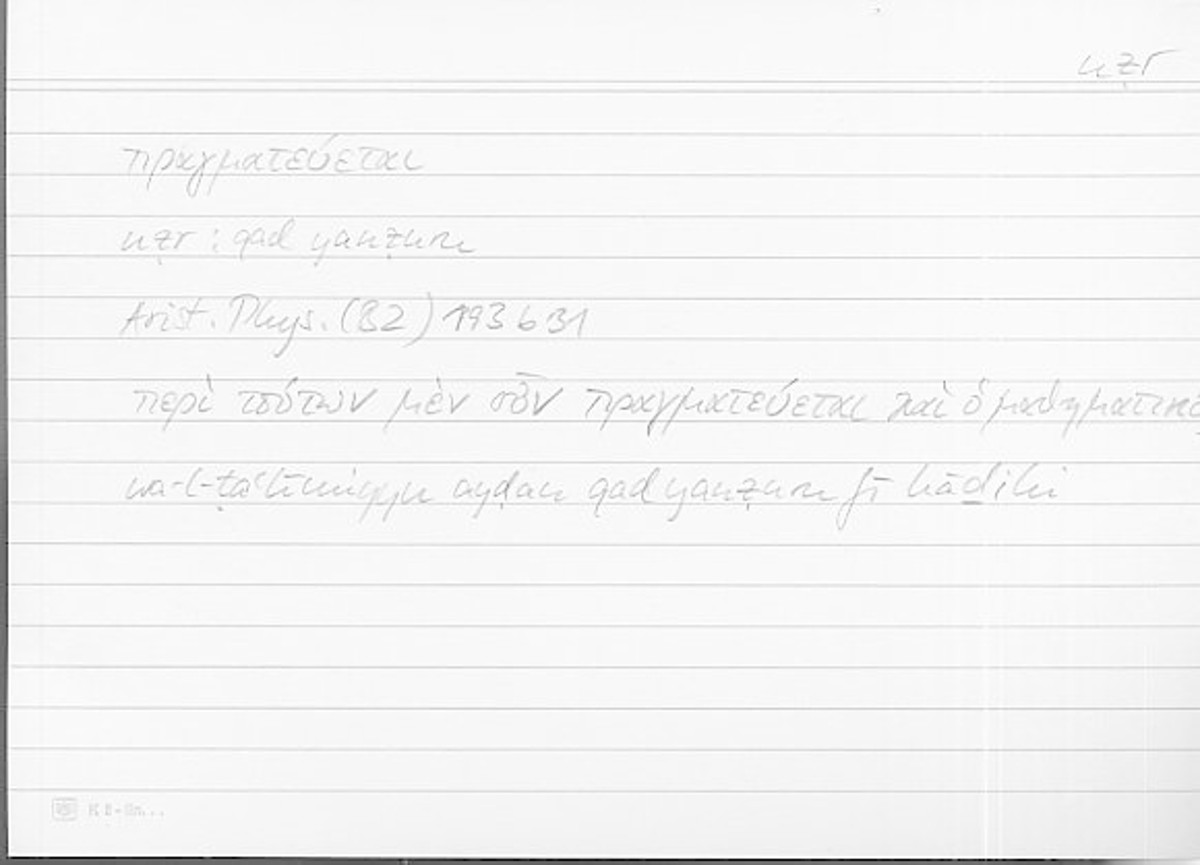 nẓr
πραγματεύεται
nẓr : qad yanẓuru
Arist. Phys. (B2) 193 b 31
περὶ τούτων μὲν οὖν πραγματεύεται καὶ ὁ μαθηματικό
wa-l-ṭaʿlīmīyyu ayḍan qad yanẓuru fī hāḏihi